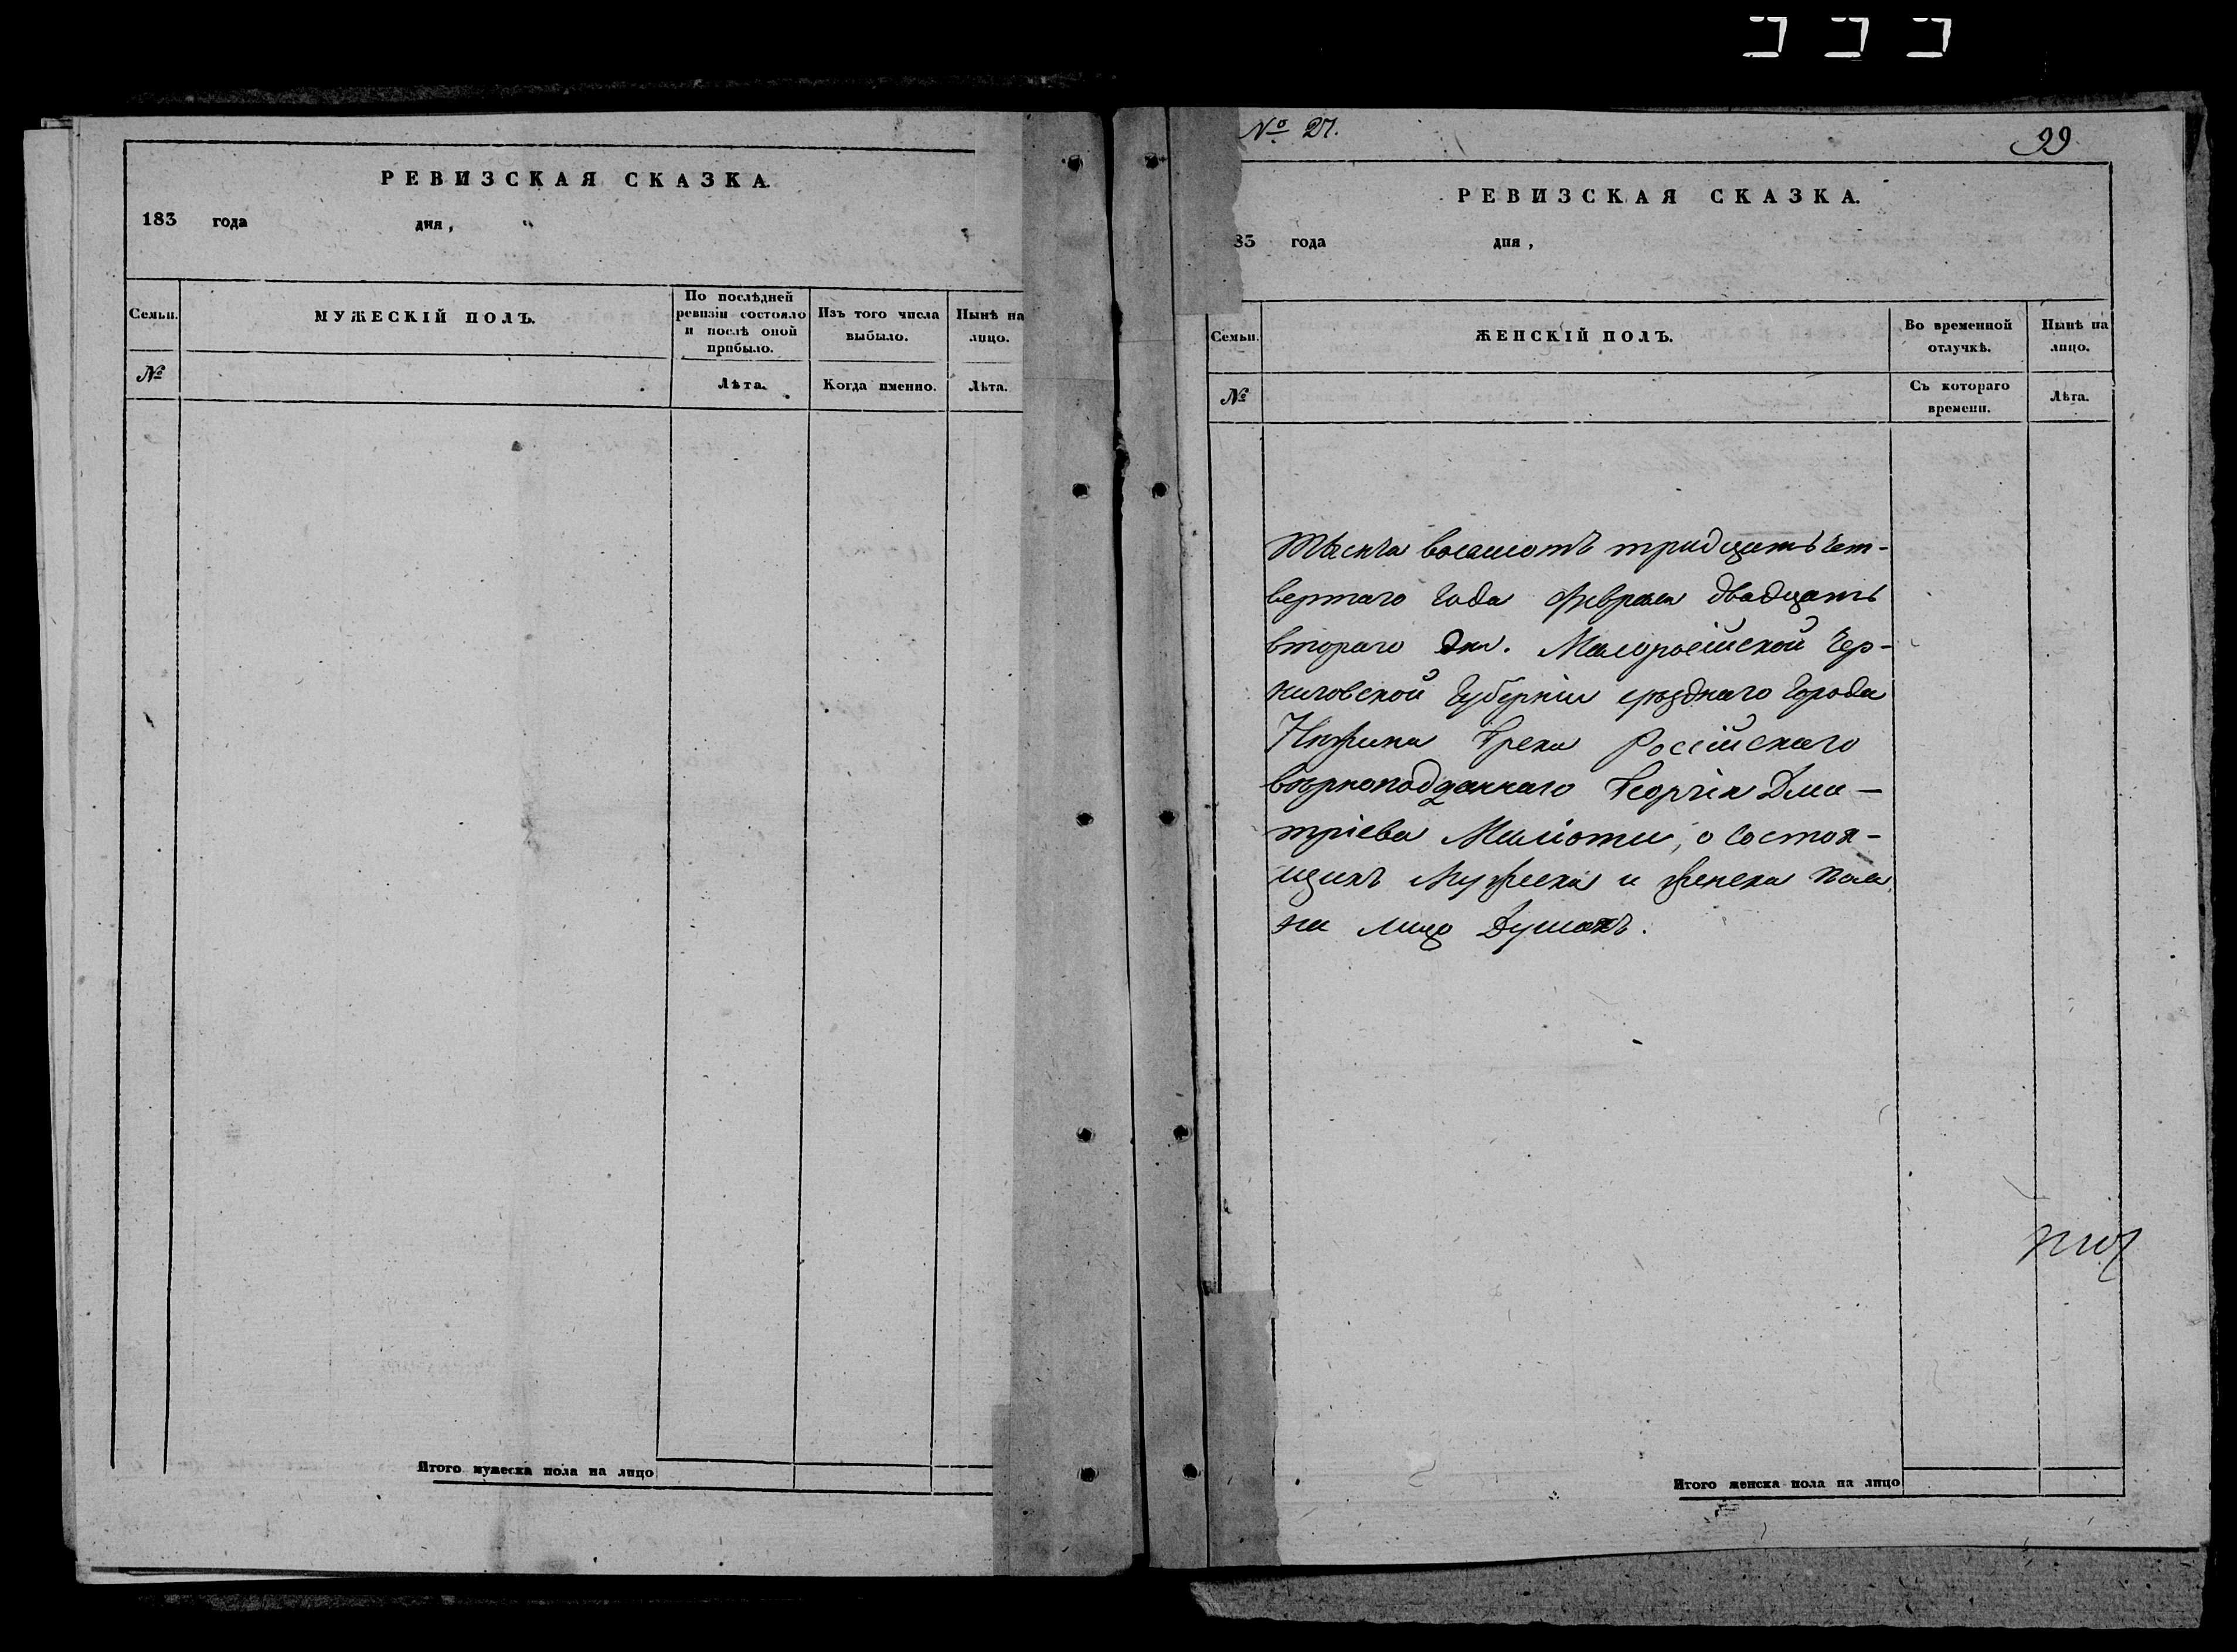 РЕВИЗСКАЯ СКАЗКА.
183 года дня,
Семьи.
МУЖЕСКІЙ ПОЛЪ.
По послѣдней
ревизіи состояло
и послѣ оной
прибыло.
Изъ того числа
выбыло.
Нынѣ на
лицо.
№
Лѣта.
Когда именно.
Лѣта.
Итого мужеска пола на лицо
№ 27.
99
РЕВИЗСКАЯ СКАЗКА.
83 года дня,
Семьи.
ЖЕНСКІЙ ПОЛЪ.
Во временной
отлучкѣ.
Нынѣ на
лицо.
№
Съ котораго
времени.
Лѣта.
Тысяча восемсотъ тридцать чет-
вертаго года февраля двадцать
втораго дня. Малоросійской Чер-
ниговской Губерніи уѣзднаго города
Нѣжина Грека Російскаго
вѣрноподданнаго Георгія Дми-
тріева Маліоти, о состоя-
щихъ Мужеска и женска пола
на лицо Душахъ.
Итого женска пола на лицо